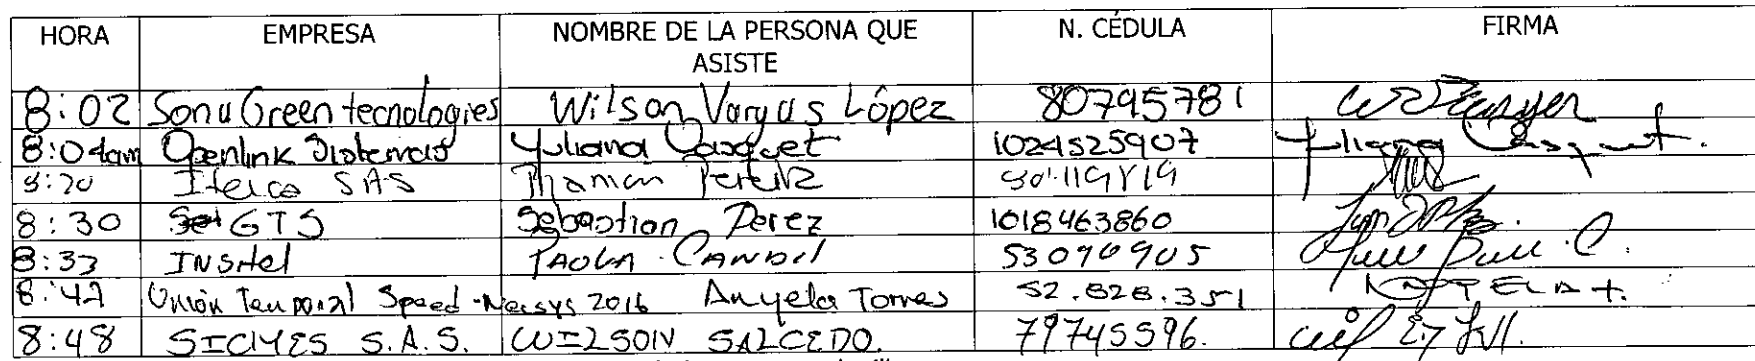 HORA EMPRESA NOMBRE DE LA PERSONA QUE ASISTE N. CÉDULA FIRMA
8:02 Sonu Green tecnologies Wilson Vargas López 80795781
8:04am Openlink Sistemas Yuliana Casquet 1024525907 Yuliana Casquet.
8:20 Itelca SAS
8:30 GTS Sebastian Perez 1018463860
8:33 INSHel PAOLA CANDIL 53090905
8:42 Unión Temporal Speed-Neisys 2016 Angela Torres 52.828.351
8:48 S.A.S. WILSON SALCEDO. 79745596.